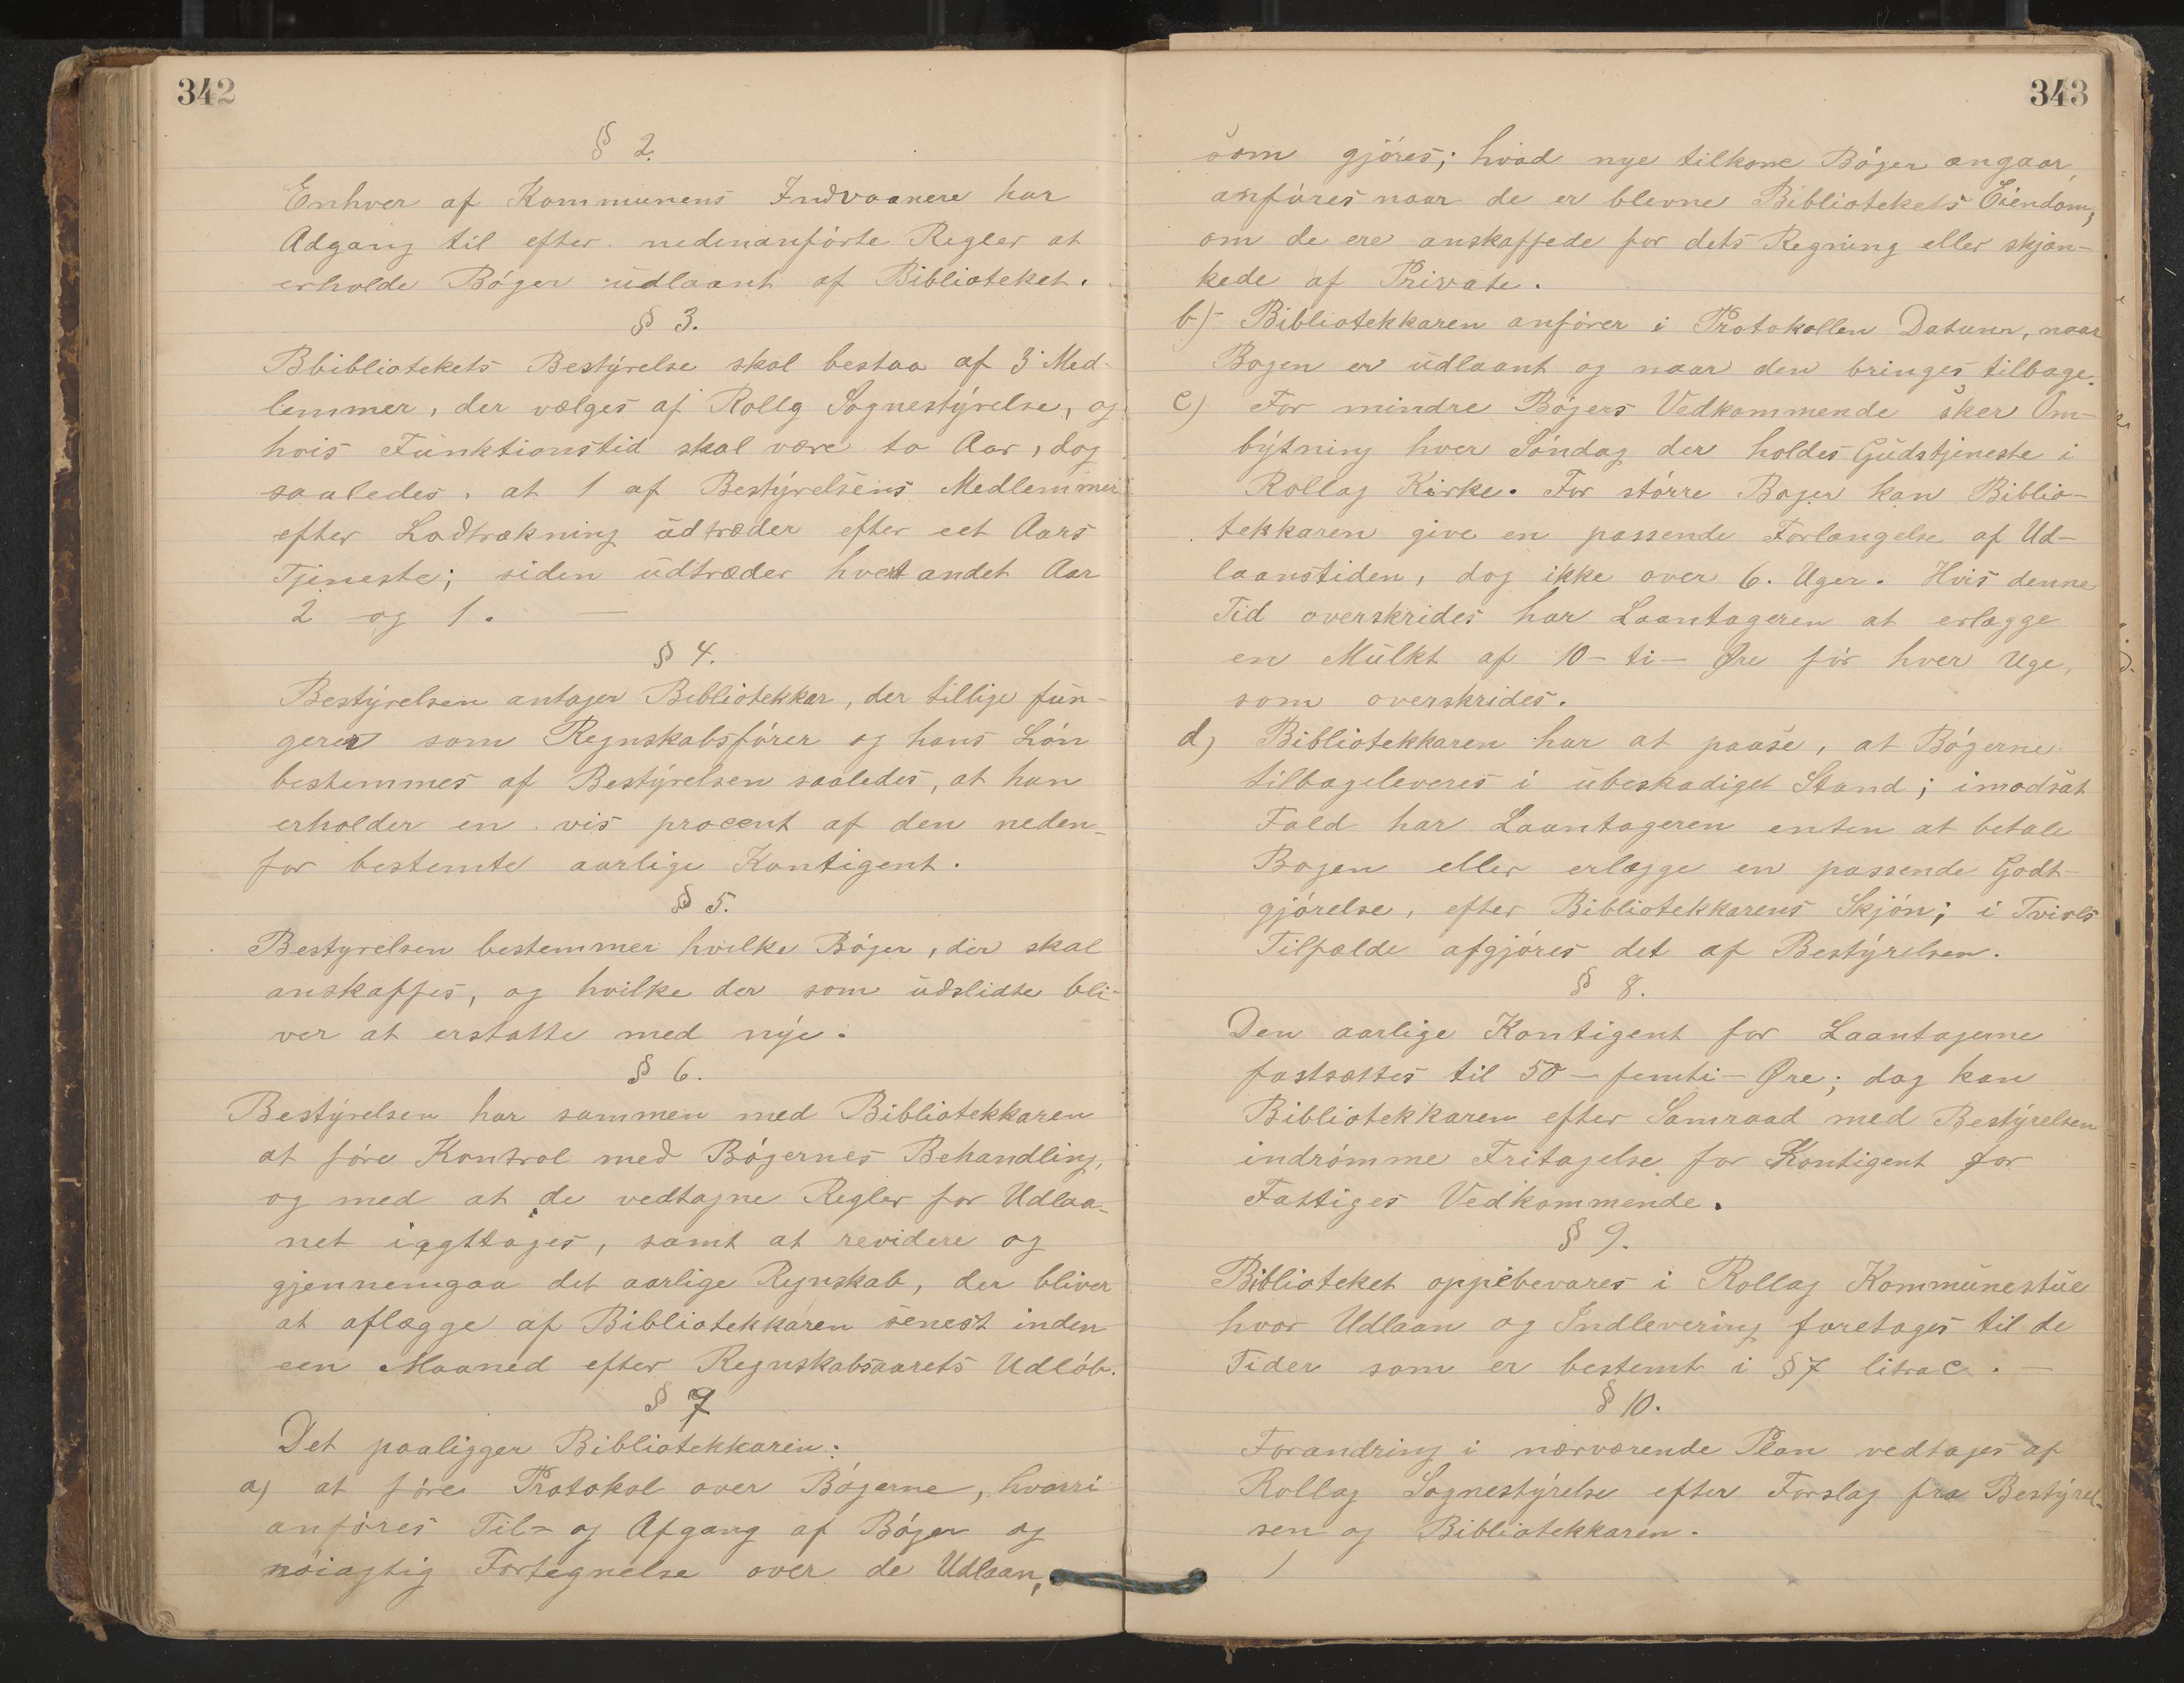 342
§ 2.
Enhver af Kommunens Indvaanere har
Adgang til efter nedenanførte Regler at
erholde Bøger udlaant af Biblioteket.
§ 3.
Bbibliotekets Bestyrelse skal bestaa af 3 Med-
lemmer, der vælges af Rollg Sognestyrelse, og
hvis Funktionstid skal være to Aar, dog
saaledes, at 1 af Bestyrelsens Medlemmer
efter Lodtrækning udtræder efter eet Aars
Tjeneste; siden udtræder hvert andet Aar
2 og 1. —
§ 4.
Bestyrelsen antager Bibliotekkar, der tillige fun-
gerer som Regnskabsfører og hans Løn
bestemmes af Bestyrelsen saaledes, at han
erholder en vis procent af den neden-
for bestemte aarlige Kontigent.
§ 5.
Bestyrelsen bestemmer hvilke Bøger, der skal
anskaffes, og hvilke der som udslidte bli-
ver at erstatte med nye.
§ 6.
Bestyrelsen har sammen med Bibliotekkaren
at føre Kontrol med Bøgernes Behandling,
og med at de vedtagne Regler for Udlaa-
net iagttages, samt at revidere og
gjennemgaa det aarlige Regnskab, der bliver
at aflægge af Bibliotekkaren senest inden
een Maaned efter Regnskabsaarets Udløb.
§ 7
Det paaligger Bibliotekkaren:
a) at føre Protokol over Bøgerne, hvorri
anføres Til- og Afgang af Bøger og
nøiagtig Fortegnelse over de Udlaan,
343
som gjøres; hvad nye tilkone Bøger angaar,
anføres naar de er blevne Bibliotekets Eiendom,
om de ere anskaffede for dets Regning eller skjæn-
kede af Private.
b) Bibliotekkaren anfører i Protokollen Datum, naar
Bogen er udlaant og naar den bringes tilbage.
c) For mindre Bøgers Vedkommende sker Om-
bytning hver Søndag der holdes Gudstjeneste i
Rollag Kirke. For større Bøger kan Biblio-
tekkaren give en passende Forlængelse af Ud-
laanstiden, dog ikke over 6. Uger. Hvis denne
Tid overskrides har Laantageren at erlægge
en Mulkt af 10 - ti - Øre før hver Uge,
som overskrides.
d) Bibliotekkaren har at paase, at Bøgerne
tilbageleveres i ubeskadiget Stand; imodsat
Fald har Laantageren enten at betale
Bogen eller erlægge en passende Godt-
gjørelse, efter Bibliotekkarens Skjøn; i Tvivls
Tilfælde afgjøres det af Bestyrelsen.
§ 8.
Den aarlige Kontigent for Laantagerne
fastsættes til 50 - femti - Øre; dog kan
Bibliotekkaren efter Samraad med Bestyrelsen
indrømme Fritagelse for Kontigent for
Fattiges Vedkommende.
§ 9.
Biblioteket oppebevares i Rollag Kommunestue
hvor Udlaan og Indlevering foretages til de
Tider som er bestemt i § 7 litra c. —
§ 10.
Forandring i nærværende Plan vedtages af
Rollag Sognestyrelse efter Forslag fra Bestyrel-
sen og Bibliotekkaren.